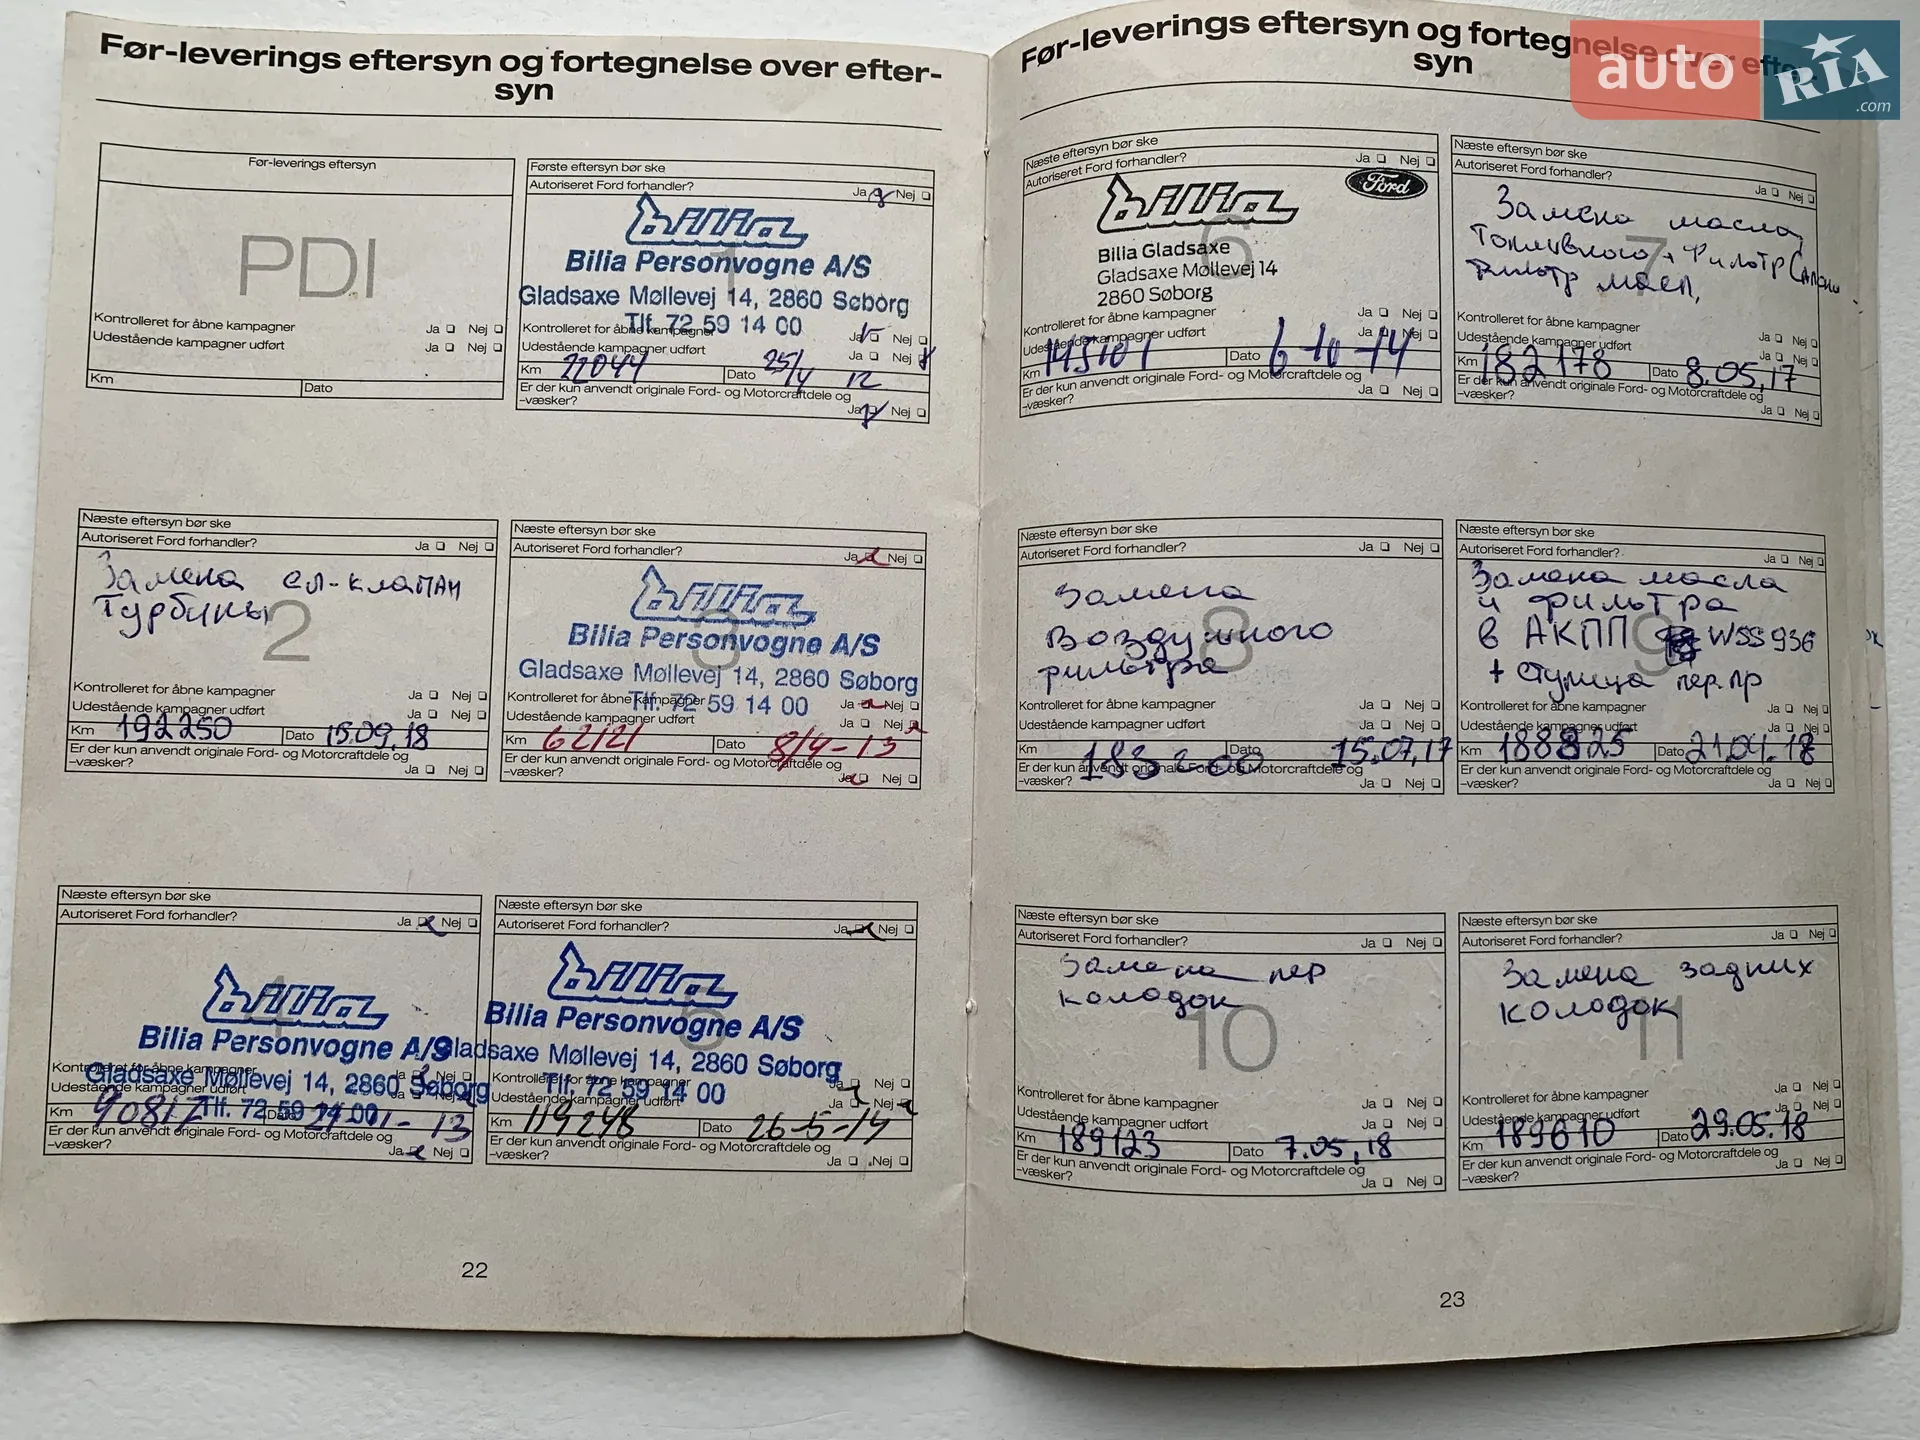 Før-leverings eftersyn og fortegnelse over efter-
syn
Før-leverings eftersyn
PDI
Kontrolleret for åbne kampagner Ja Nej
Udestående kampagner udført Ja Nej
Km Dato
Første eftersyn bør ske
Autoriseret Ford forhandler? Ja Nej
1
bilia
Bilia Personvogne A/S
Gladsaxe Møllevej 14, 2860 Søborg
Tlf. 72 59 14 00
Kontrolleret for åbne kampagner Ja Nej
Udestående kampagner udført Ja Nej
Km 22044 Dato 25/4 12
Er der kun anvendt originale Ford- og Motorcraftdele og
-væsker? Ja Nej
Næste eftersyn bør ske
Autoriseret Ford forhandler? Ja Nej
Замена ел-клапан
Турбины
2
Kontrolleret for åbne kampagner Ja Nej
Udestående kampagner udført Ja Nej
Km 192250 Dato 15.09.18
Er der kun anvendt originale Ford- og Motorcraftdele og
-væsker? Ja Nej
Næste eftersyn bør ske
Autoriseret Ford forhandler? Ja Nej
3
bilia
Bilia Personvogne A/S
Gladsaxe Møllevej 14, 2860 Søborg
Tlf. 72 59 14 00
Kontrolleret for åbne kampagner Ja Nej
Udestående kampagner udført Ja Nej
Km 62121 Dato 8/4-13
Er der kun anvendt originale Ford- og Motorcraftdele og
-væsker? Ja Nej
Næste eftersyn bør ske
Autoriseret Ford forhandler? Ja Nej
4
bilia
Bilia Personvogne A/S
Gladsaxe Møllevej 14, 2860 Søborg
Tlf. 72 59 14 00
Kontrolleret for åbne kampagner Ja Nej
Udestående kampagner udført Ja Nej
Km 90817 Dato
Er der kun anvendt originale Ford- og Motorcraftdele og
-væsker? Ja Nej
Næste eftersyn bør ske
Autoriseret Ford forhandler? Ja Nej
5
bilia
Bilia Personvogne A/S
Gladsaxe Møllevej 14, 2860 Søborg
Tlf. 72 59 14 00
Kontrolleret for åbne kampagner Ja Nej
Udestående kampagner udført Ja Nej
Km 119248 Dato 26-5-14
Er der kun anvendt originale Ford- og Motorcraftdele og
-væsker? Ja Nej
22
Før-leverings eftersyn og fortegnelse over efter-
syn
auto RIA .com
Næste eftersyn bør ske
Autoriseret Ford forhandler? Ja Nej
6
bilia
Ford
Bilia Gladsaxe
Gladsaxe Møllevej 14
2860 Søborg
Kontrolleret for åbne kampagner Ja Nej
Udestående kampagner udført Ja Nej
Km Dato 6-10-14
Er der kun anvendt originale Ford- og Motorcraftdele og
-væsker? Ja Nej
Næste eftersyn bør ske
Autoriseret Ford forhandler? Ja Nej
7
Замена масла,
Топливного, Фильтр
Фильтр масл.
Kontrolleret for åbne kampagner Ja Nej
Udestående kampagner udført Ja Nej
Km 182178 Dato 8.05,17
Er der kun anvendt originale Ford- og Motorcraftdele og
-væsker? Ja Nej
Næste eftersyn bør ske
Autoriseret Ford forhandler? Ja Nej
8
Замена
Воздушного
фильтра
Kontrolleret for åbne kampagner Ja Nej
Udestående kampagner udført Ja Nej
Km 183200 Dato 15.07,17
Er der kun anvendt originale Ford- og Motorcraftdele og
-væsker? Ja Nej
Næste eftersyn bør ske
Autoriseret Ford forhandler? Ja Nej
9
Замена масла
и фильтра
в АКПП WSS936
+ ступица пер.пр
Kontrolleret for åbne kampagner Ja Nej
Udestående kampagner udført Ja Nej
Km 188825 Dato 21.04.18
Er der kun anvendt originale Ford- og Motorcraftdele og
-væsker? Ja Nej
Næste eftersyn bør ske
Autoriseret Ford forhandler? Ja Nej
10
Замена пер
колодок
Kontrolleret for åbne kampagner Ja Nej
Udestående kampagner udført Ja Nej
Km 189123 Dato 7.05,18
Er der kun anvendt originale Ford- og Motorcraftdele og
-væsker? Ja Nej
Næste eftersyn bør ske
Autoriseret Ford forhandler? Ja Nej
11
Замена задних
колодок
Kontrolleret for åbne kampagner Ja Nej
Udestående kampagner udført Ja Nej
Km 189610 Dato 29.05.18
Er der kun anvendt originale Ford- og Motorcraftdele og
-væsker? Ja Nej
23